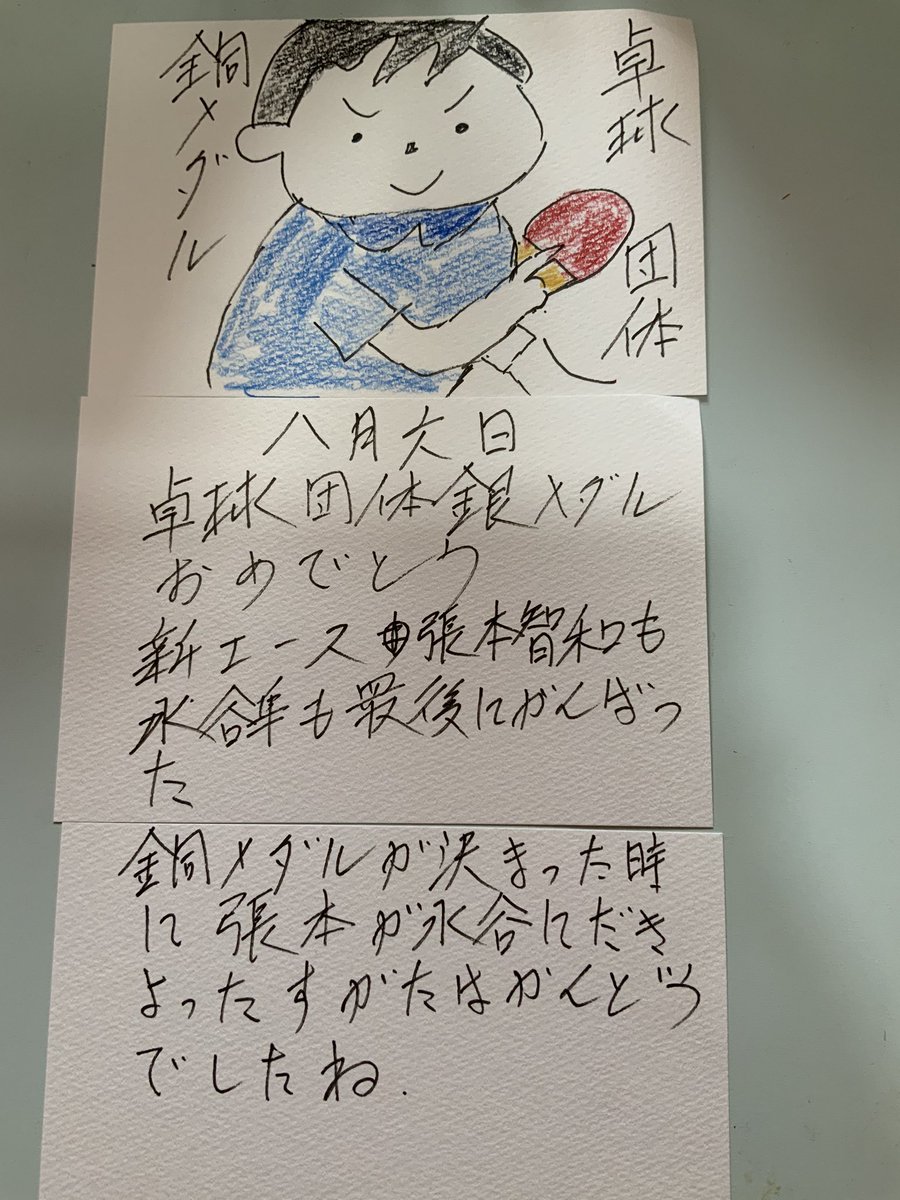 卓球 団体
銅メダル
八月六日
卓球団体銀メダル
おめでとう
新エース張本智和も
水谷隼も最後にがんばっ
た
銅メダルが決まった時
に張本が水谷にだき
よったすがたはかんどう
でしたね.